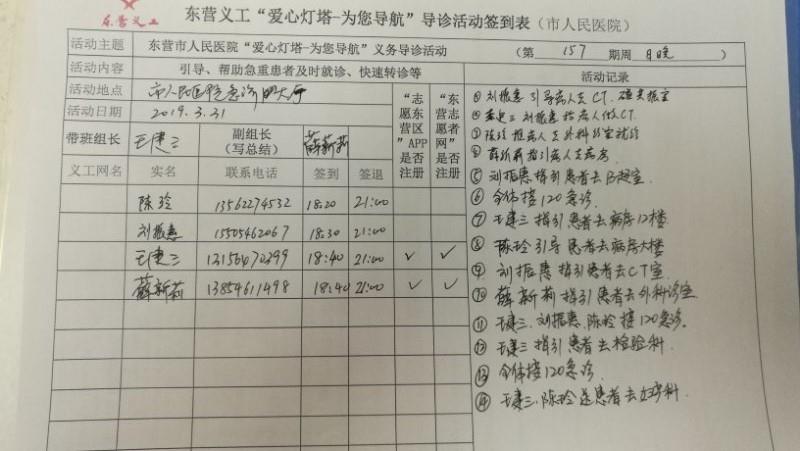 东营义工
东营义工“爱心灯塔-为您导航”导诊活动签到表（市人民医院）
活动主题 东营市人民医院“爱心灯塔-为您导航”义务导诊活动 （第 157 期周 日晚
活动内容 引导、帮助急重患者及时就诊、快速转诊等
活动地点 市人民医院急诊门大厅
活动日期 2019.3.31
带班组长 王建三 副组长（写总结） 薛新莉
“志愿东营区”APP是否注册
“东营志愿者网”是否注册
活动记录
义工网名 实名 联系电话 签到 签退
陈玲 13562274532 18:20 21:00
刘振惠 15505462067 18:30 21:00
王建三 13156470399 18:40 21:00 ✓ ✓
薛新莉 13854611498 18:40 21:00 ✓ ✓
① 刘振惠引导病人去CT、磁共振室
② 王建三 刘振惠 病人做CT
③ 陈玲推病人去外科诊室就诊
④ 薛新莉指引病人去病房
⑤ 刘振惠指引患者去B超室.
⑥ 全体接120急诊.
⑦ 王建三指引患者去病房12楼
⑧ 陈玲引导患者去病房大楼
⑨ 刘振惠指引患者去CT室.
⑩ 薛新莉指引患者去外科诊室
⑪ 王建三.刘振惠.陈玲接120急诊.
⑫ 王建三指引患者去检验科.
⑬ 全体接120急诊.
⑭ 王建三.陈玲送患者去妇产科.